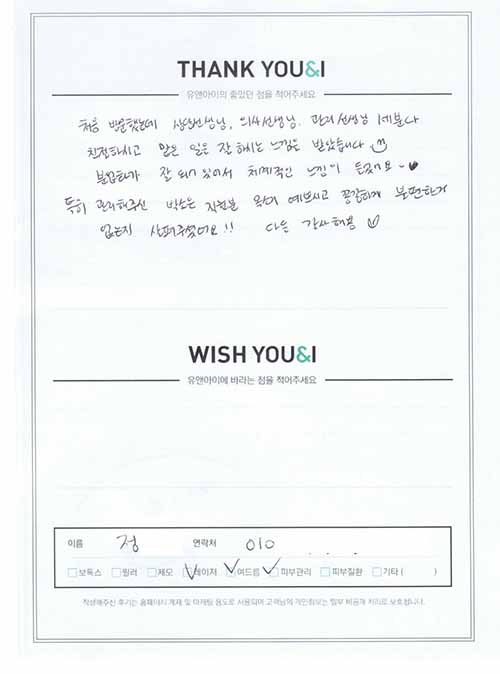 THANK YOU&I
유앤아이의 좋았던 점을 적어주세요
처음 방문했는데 상담선생님, 의사선생님, 관리선생님 세분다
친절하시고 맡은 일은 잘 하시는 느낌을 받았습니다
분업화가 잘 되어 있어서 체계적인 느낌이 들었어요~♥
특히 관리해주신 박소은 직원분 목소리 예쁘시고 꼼꼼하게 불편한거
없는지 살펴주셨어요!! 다들 감사해용
WISH YOU&I
유앤아이에 바라는 점을 적어주세요
이름 정 연락처 010
보톡스 필러 제모 레이저 여드름 피부관리 피부질환 기타 ( )
작성해주신 후기는 홈페이지 게재 및 마케팅 용도로 사용되며 고객님의 개인정보는 일부 비공개 처리로 보호됩니다.